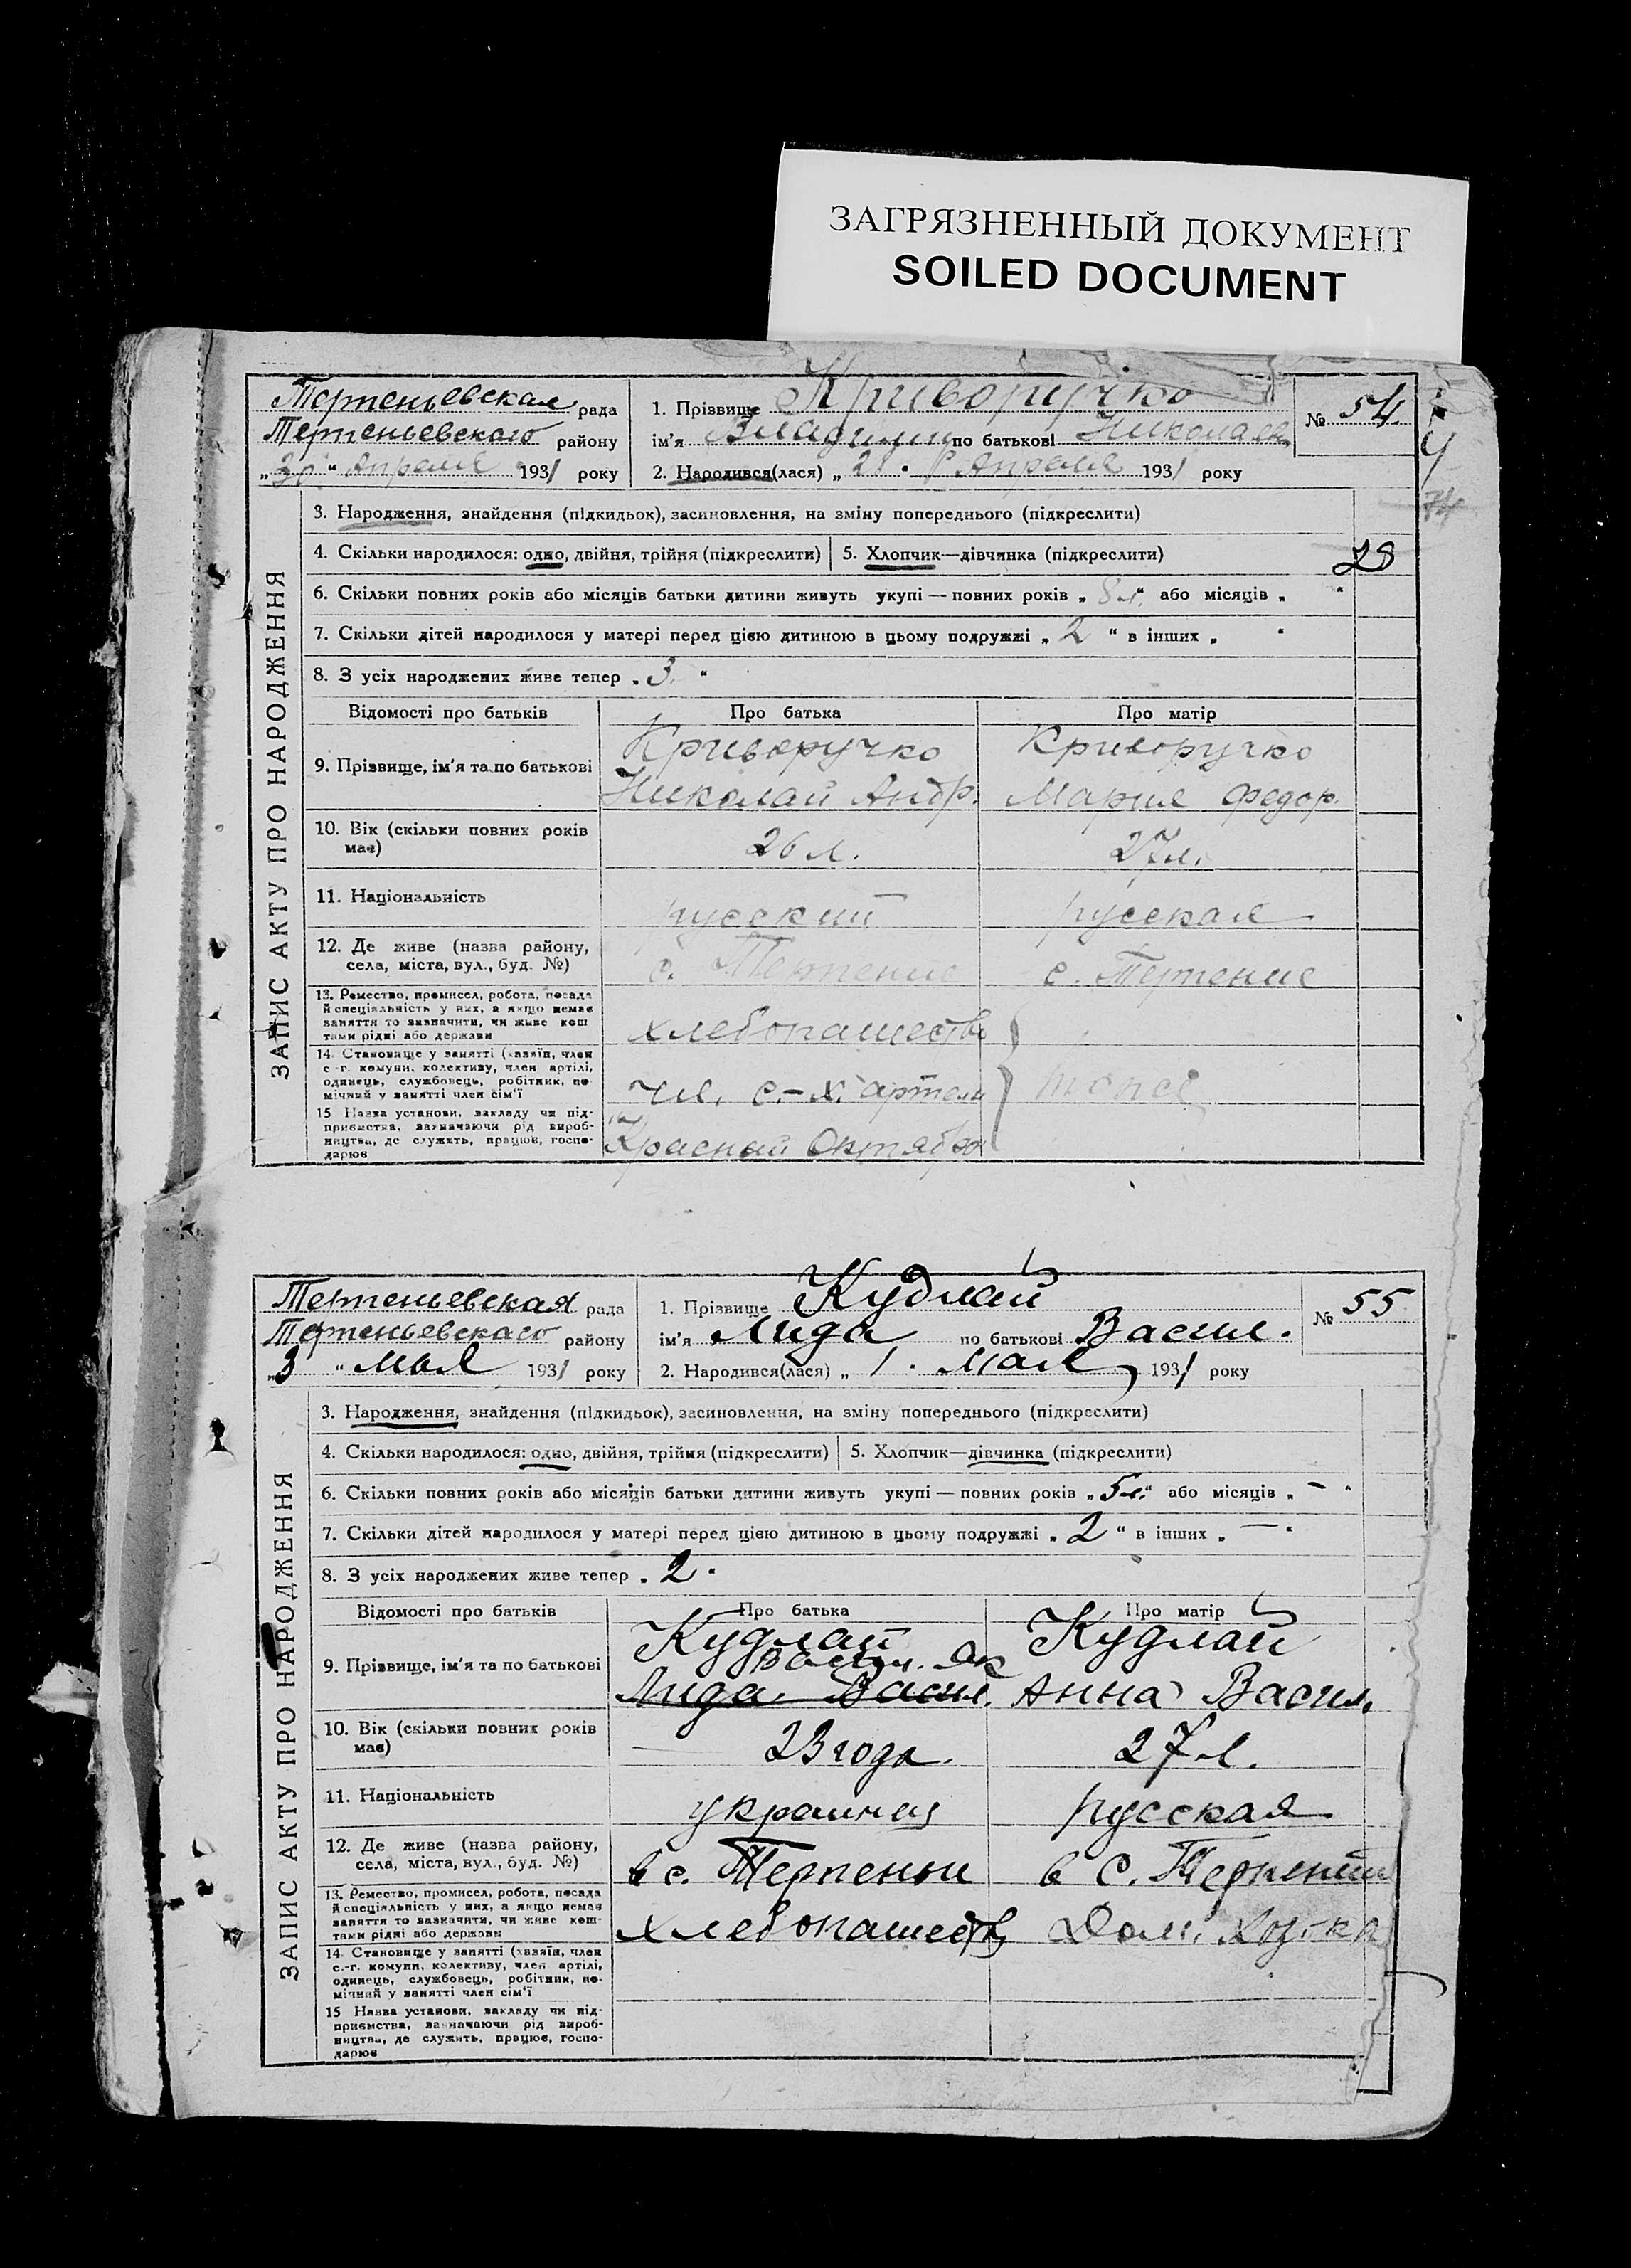 ЗАГРЯЗНЕННЫЙ ДОКУМЕНТ
SOILED DOCUMENT
Терпеньевская рада
Терпеньевского району
„30“ Апреля 1931 року
1. Прізвище Криворучко
ім'я Владимир по батькові Николаев.
2. Народився(лася) „ Апреля 1931 року
№ 54
ЗАПИС АКТУ ПРО НАРОДЖЕННЯ
3. Народження, знайдення (підкидьок), засиновлення, на зміну попереднього (підкреслити)
4. Скільки народилося: одно, двійня, трійня (підкреслити) 5. Хлопчик—дівчинка (підкреслити)
28
6. Скільки повних років або місяців батьки дитини живуть укупі — повних років „8 л.“ або місяців „ “
7. Скільки дітей народилося у матері перед цією дитиною в цьому подружжі „2“ в інших „ “
8. З усіх народжених живе тепер „3.“
Відомості про батьків Про батька Про матір
9. Прізвище, ім'я та по батькові
Криворучко Криворучко
Николай Андр. Мария Федор.
10. Вік (скільки повних років має) 26 л. 27 л.
11. Національність русский русская
12. Де живе (назва району,
села, міста, вул., буд. №) с. Терпение с. Терпение
13. Ремество, промисел, робота, посада
й спеціяльність у них, а якщо немає
заняття то зазначити, чи живе кош
тами рідні або держави
хлебопашеств
14. Становище у занятті (хазяїн, член
с.-г. комуни, колективу, член артілі,
одинець, службовець, робітник, по
мічний у занятті член сім'ї
чл. с.-х. артели тоже
15 Назва установи, закладу чи під-
приємства, зазначаючи рід вироб-
ництва, де служить, працює, госпо-
дарює
Красный Октябрь
Терпеньевская рада
Терпеньевского району
„3“ мая 1931 року
1. Прізвище Кудлай
ім'я Лида по батькові Васил.
2. Народився(лася) „1“ Мая 1931 року
№ 55
ЗАПИС АКТУ ПРО НАРОДЖЕННЯ
3. Народження, знайдення (підкидьок), засиновлення, на зміну попереднього (підкреслити)
4. Скільки народилося: одно, двійня, трійня (підкреслити) 5. Хлопчик—дівчинка (підкреслити)
6. Скільки повних років або місяців батьки дитини живуть укупі — повних років „5 л.“ або місяців „–“
7. Скільки дітей народилося у матері перед цією дитиною в цьому подружжі „2“ в інших „—“
8. З усіх народжених живе тепер „2“
Відомості про батьків Про батька Про матір
9. Прізвище, ім'я та по батькові
Кудлай Кудлай
Васил. Як
Лида Васил. Анна Васил.
10. Вік (скільки повних років
має) 23 года. 27 л.
11. Національність украинец русская
12. Де живе (назва району,
села, міста, вул., буд. №) в с. Терпении в с. Терпении
13. Ремество, промисел, робота, посада
й спеціяльність у них, а якщо немає
заняття то зазначити, чи живе кош-
тами рідні або держави
хлебопашеств Дом. хозяйка
14. Становище у занятті (хазяїн, член
с.-г. комуни, колективу, член артілі,
одинець, службовець, робітник, по-
мічний у занятті член сім'ї
15 Назва установи, закладу чи під-
приємства, зазначаючи рід вироб-
ництва, де служить, працює, госпо-
дарює